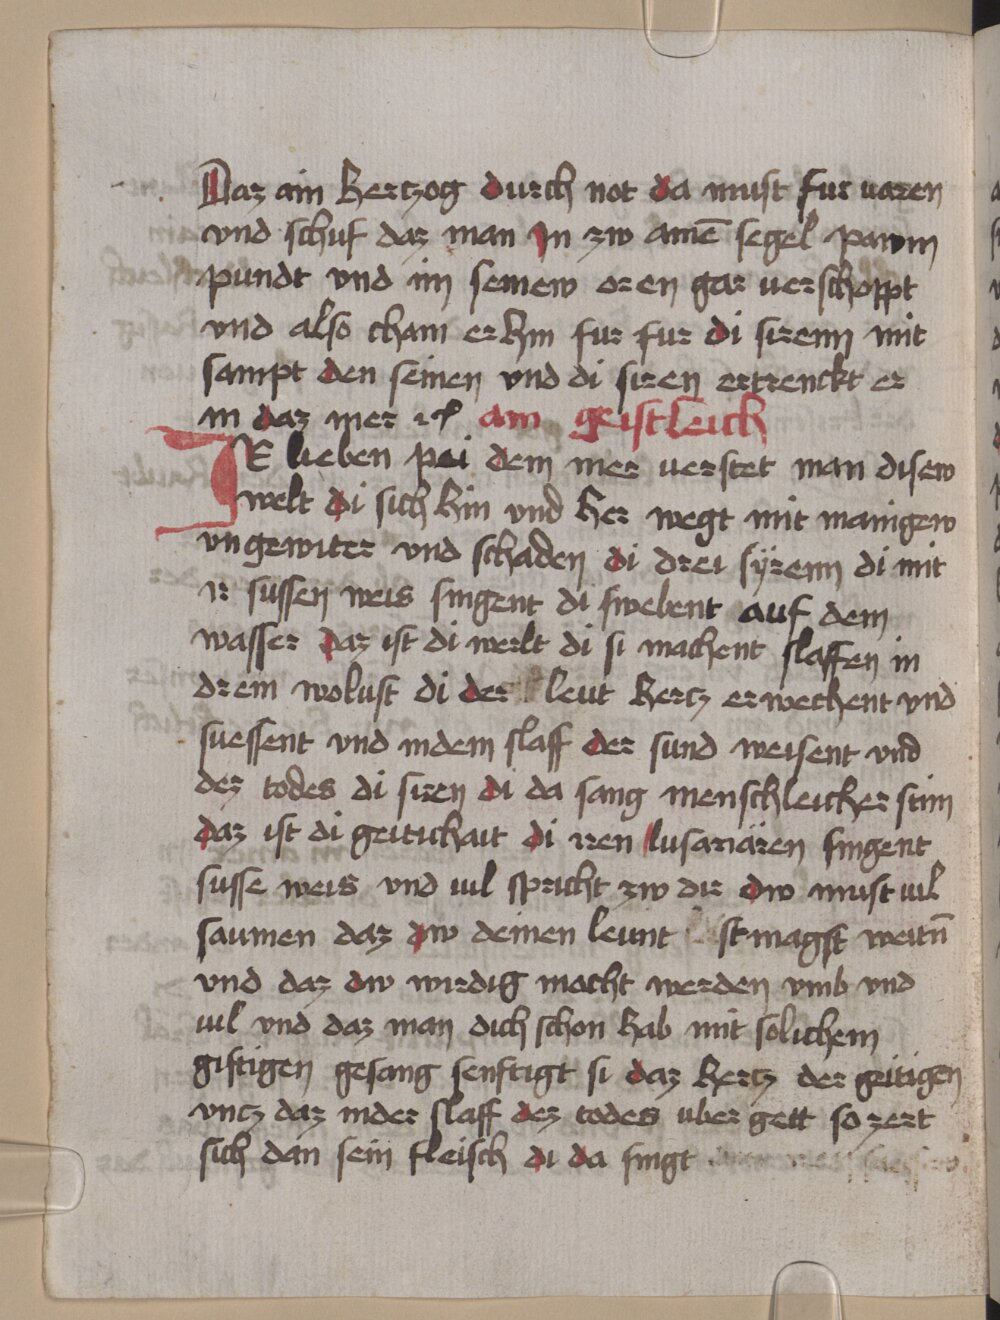 Daz ain hertzog durch not da must fur uaren
vnd schuf daz man In zw ainē segel pawm
pundt vnd im seinew oren gar uerschoppt
vnd also cham er hin fur fur di sirenn mit
sampt den seinen vnd di siren ertrenckt er
in daz mer ain geistleich
IE lieben pei dem mer uerstet man disew
welt di sich hin vnd her wegt mit manigew
vngewiter vnd schaden di drei sÿrenn di mit
ir sussen weis singent di swebent auf dem
wasser daz ist di werlt di si machent slaffen in
drem wolust di der leut hertz erwechent vnd
suessent vnd indem slaff der sund weisent vnd
dez todes di siren di da sang menschleicher stim
daz ist di geitichait di iren singent
susse weis vnd uil spricht zw dir dw must uil
saumen daz dw deinen leunt magst weitn̄
vnd daz dw wirdig macht werden vmb vnd
uil vnd daz man dich schon hab mit solichem
giftigen gesang senftigt si daz hertz der geitigen
vntz daz inder slaff dez todes uber gett so zert
sich dan sein fleisch di da singt